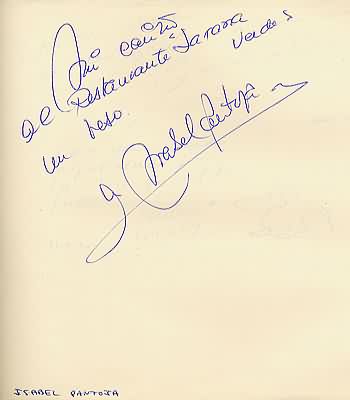 Mi cariño
al Restaurante "Jarana
un beso.
Isabel Pantoja
ISABEL PANTOJA